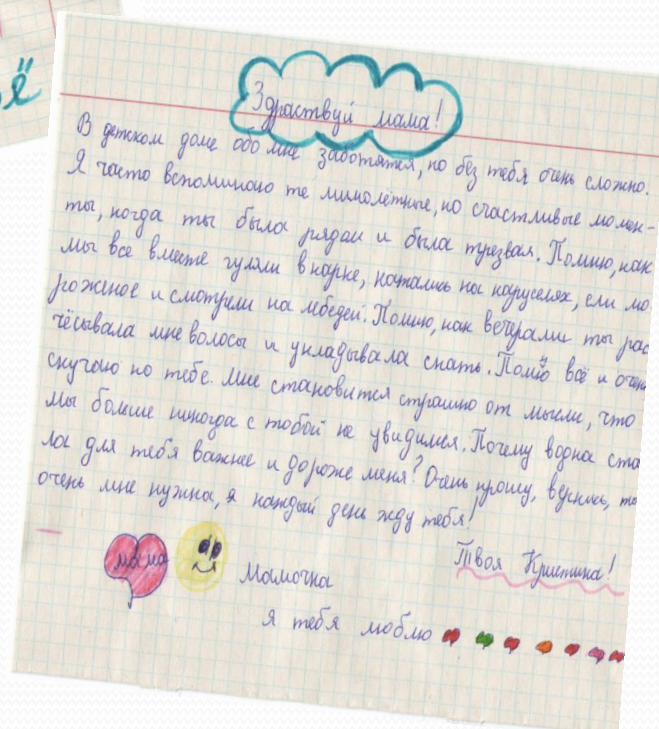 ё
Здраствуй мама!
В детском доме обо мне заботятся, но без тебя очень сложно.
Я часто вспоминаю те мимолётные, но счастливые момен-
ты, когда ты была рядом и была трезвая. Помню, как
мы все вместе гуляли в парке, катались на каруселях, ели мо
роженое и смотрели на лебедей. Помню, как вечерами ты рас
чёсывала мне волосы и укладывала спать. Помню всё и очень
скучаю по тебе. Мне становится страшно от мысли, что
мы больше никогда с тобой не увидимся. Почему водка ста
ла для тебя важнее и дороже меня? Очень прошу, вернись, ты
очень мне нужна, я каждый день жду тебя!
Твоя Кристина!
мама
Мамочка
я тебя люблю